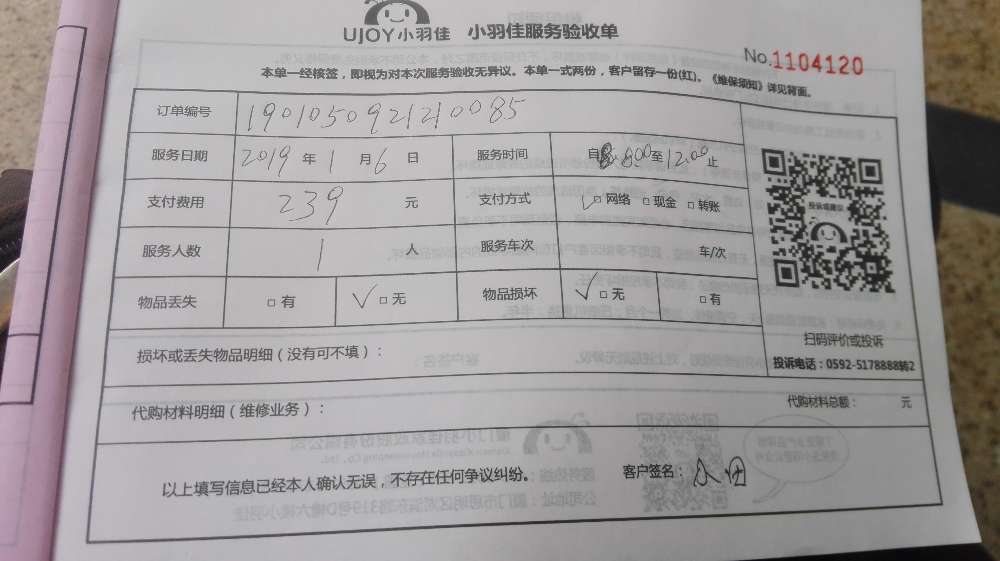 UJOY小羽佳 小羽佳服务验收单
No.1104120
本单一经核签，即视为对本次服务验收无异议。本单一式两份，客户留存一份(红)。《维保须知》详见背面。
订单编号 19010509212120085
服务日期 2019 年 1 月 6 日 服务时间 自 8:00 至 12:00 止
支付费用 239 元 支付方式 ✓□网络 □现金 □转账
服务人数 1 人 服务车次 车/次
物品丢失 □有 ✓□无 物品损坏 ✓□无 □有
投诉或建议
扫码评价或投诉
投诉电话：0592-5178888转2
损坏或丢失物品明细（没有可不填）：
代购材料明细（维修业务）： 代购材料总额： 元
以上填写信息已经本人确认无误，不存在任何争议纠纷。 客户签名：